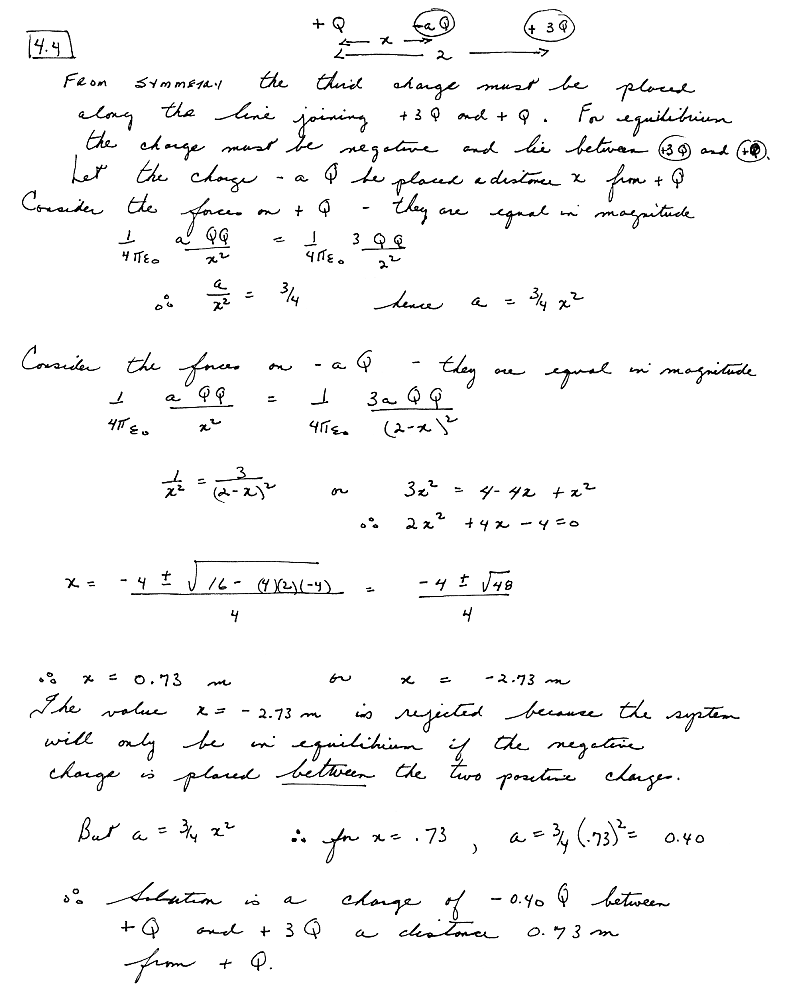 4.4
+ Q -aQ + 3Q
x
2
From symmetry the third charge must be placed
along the line joining +3Q and +Q. For equilibrium
the charge must be negative and lie between +3Q and +Q.
Let the charge - a Q be placed a distance x from + Q
Consider the forces on + Q - they are equal in magnitude
1/4πε₀ a QQ/x² = 1/4πε₀ 3 QQ/2²
∴ a/x² = 3/4 hence a = 3/4 x²
Consider the forces on - a Q - they are equal in magnitude
1/4πε₀ a QQ/x² = 1/4πε₀ 3a Q Q/(2-x)²
1/x² = 3/(2-x)² or 3x² = 4 - 4x + x²
∴ 2x² + 4x - 4 = 0
x = -4 ± √16 - (4)(2)(-4)/4 = -4 ± √48/4
∴ x = 0.73 m or x = -2.73 m
The value x = -2.73 m is rejected because the system
will only be in equilibium if the negative
charge is placed between the two positive charges.
But a = 3/4 x² ∴ for x = .73 , a = 3/4 (.73)² = 0.40
∴ Solution is a charge of -0.40 Q between
+ Q and + 3 Q a distance 0.73 m
from + Q.